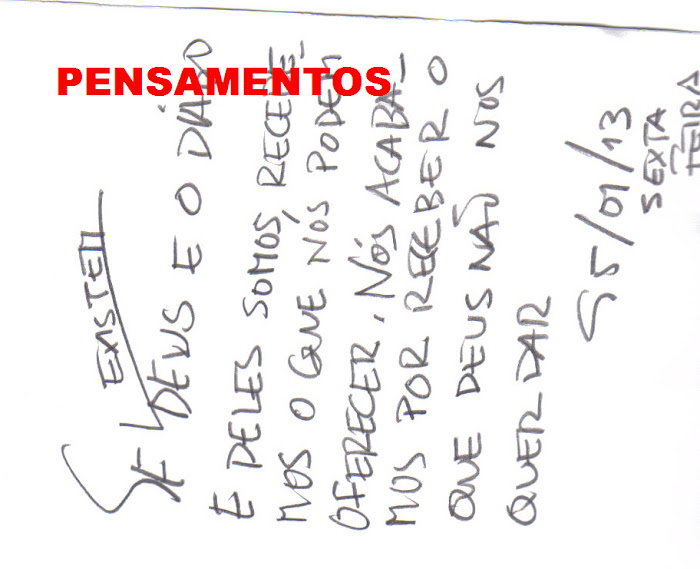 PENSAMENTOS
EXISTEM
SE DEUS E O DIABO
E DELES SOMOS, RECEBE-
MOS O QUE NOS PODEM
OFERECER. NÓS ACABA-
MOS POR RECEBER O
QUE DEUS NÃO NOS
QUER DAR
/01/13
SEXTA
FEIRA